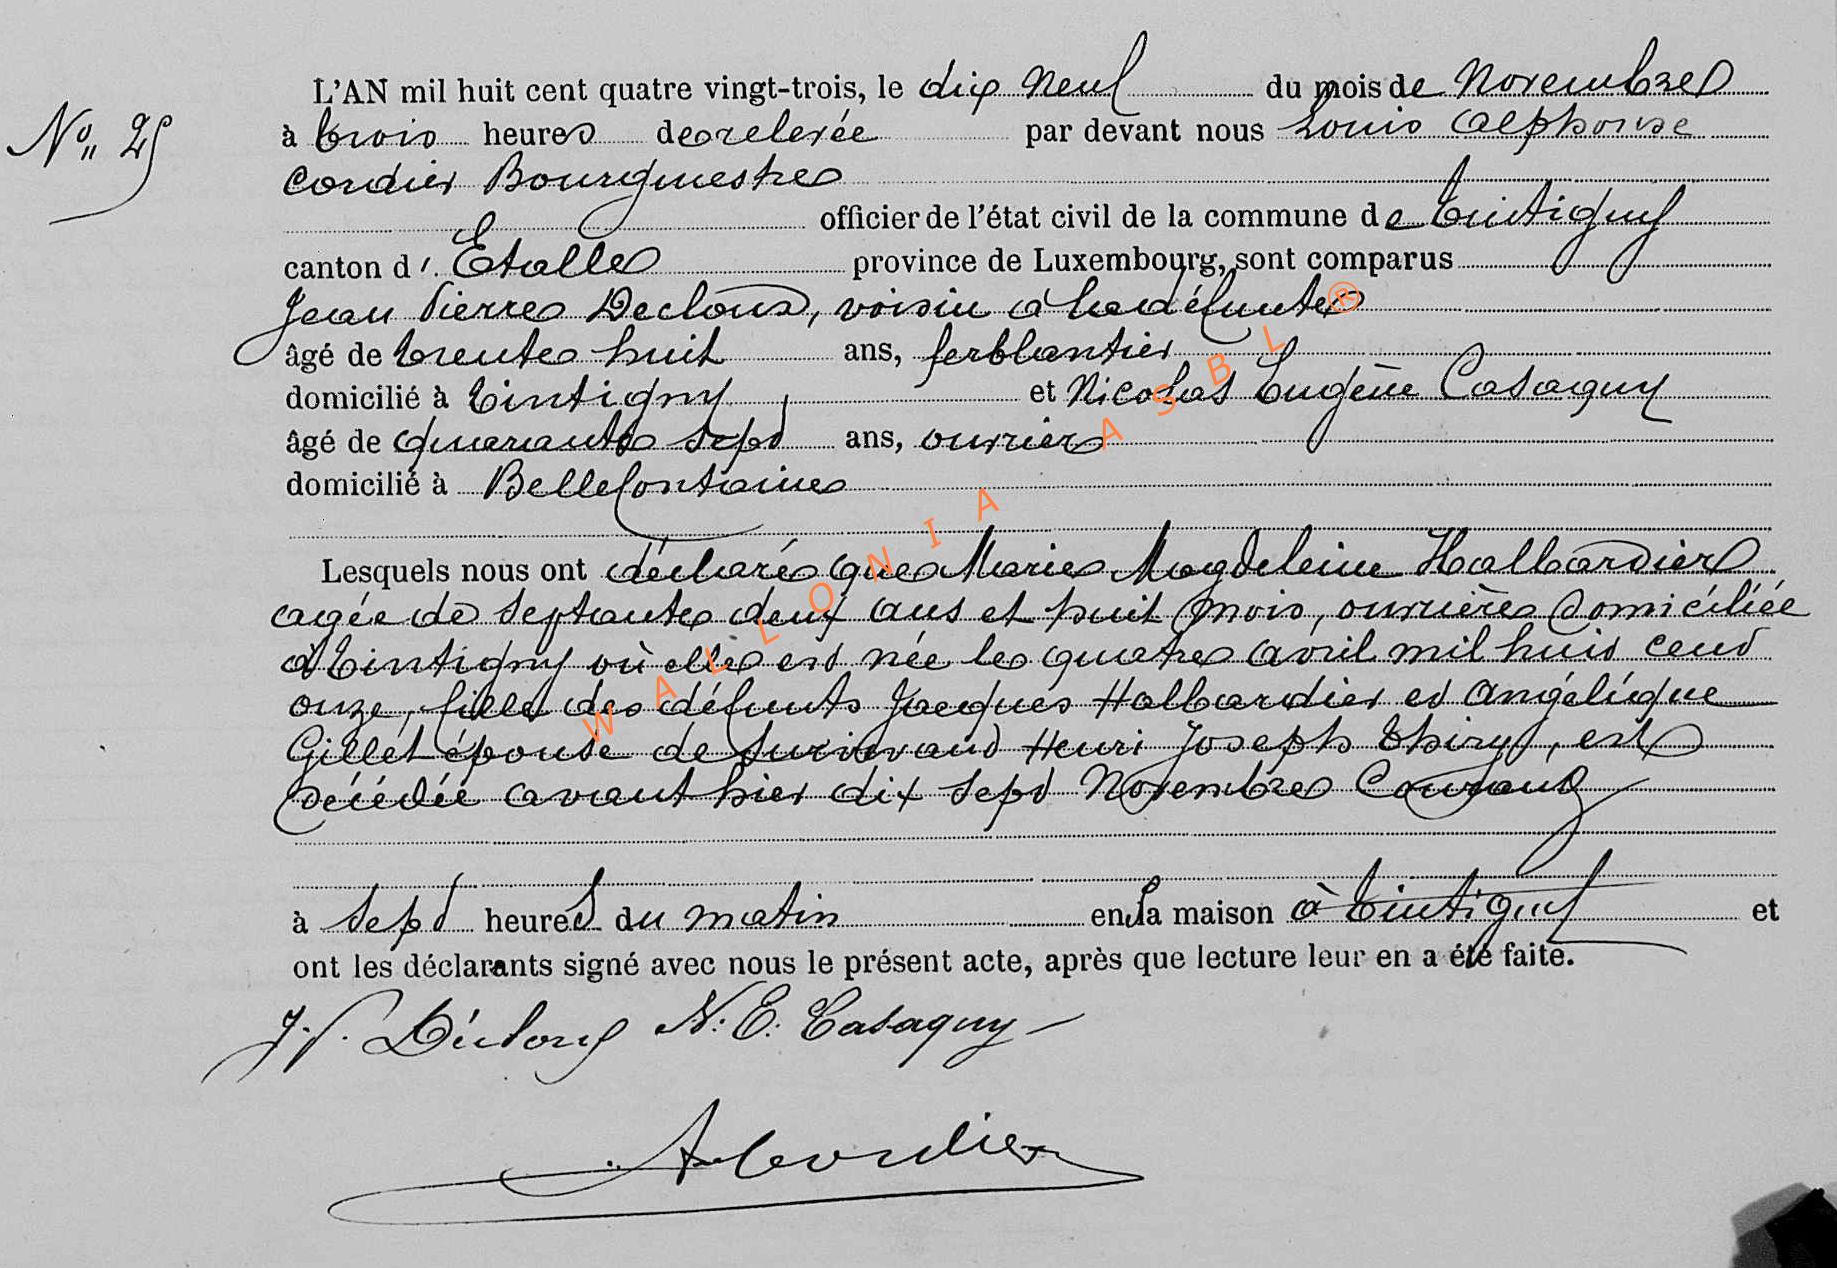 N° 25
L'AN mil huit cent quatre vingt-trois, le dix neuf du mois de Novembre
à trois heures de relevée par devant nous Louis Alphonse
Cordier Bourgmestre
officier de l'état civil de la commune de Tintigny
canton d'. Etalle province de Luxembourg, sont comparus
Jean Pierre Decloux, voisin à la défunte
âgé de trente huit ans, ferblantier
domicilié à Tintigny et Nicolas Eugène Casaquy
âgé de quarante sept ans, ouvrier
domicilié à Bellefontaine
Lesquels nous ont déclaré que Marie Magdeleine Halbardier
agée de septante deux ans et huit mois, ouvrière domiciliée
à Tintigny où elle est née le quatre avril mil huit cent
onze, fille des défunts Jacques Halbardier et Angélique
Gillet épouse de survivant Henri Joseph Thiry, est
décédée avant hier dix sept Novembre Courant
à sept heures du matin en sa maison à Tintigny et
ont les déclarants signé avec nous le présent acte, après que lecture leur en a été faite.
J. P. N. E. Casaquy
A Cordier
WALLONIA ASBL ®